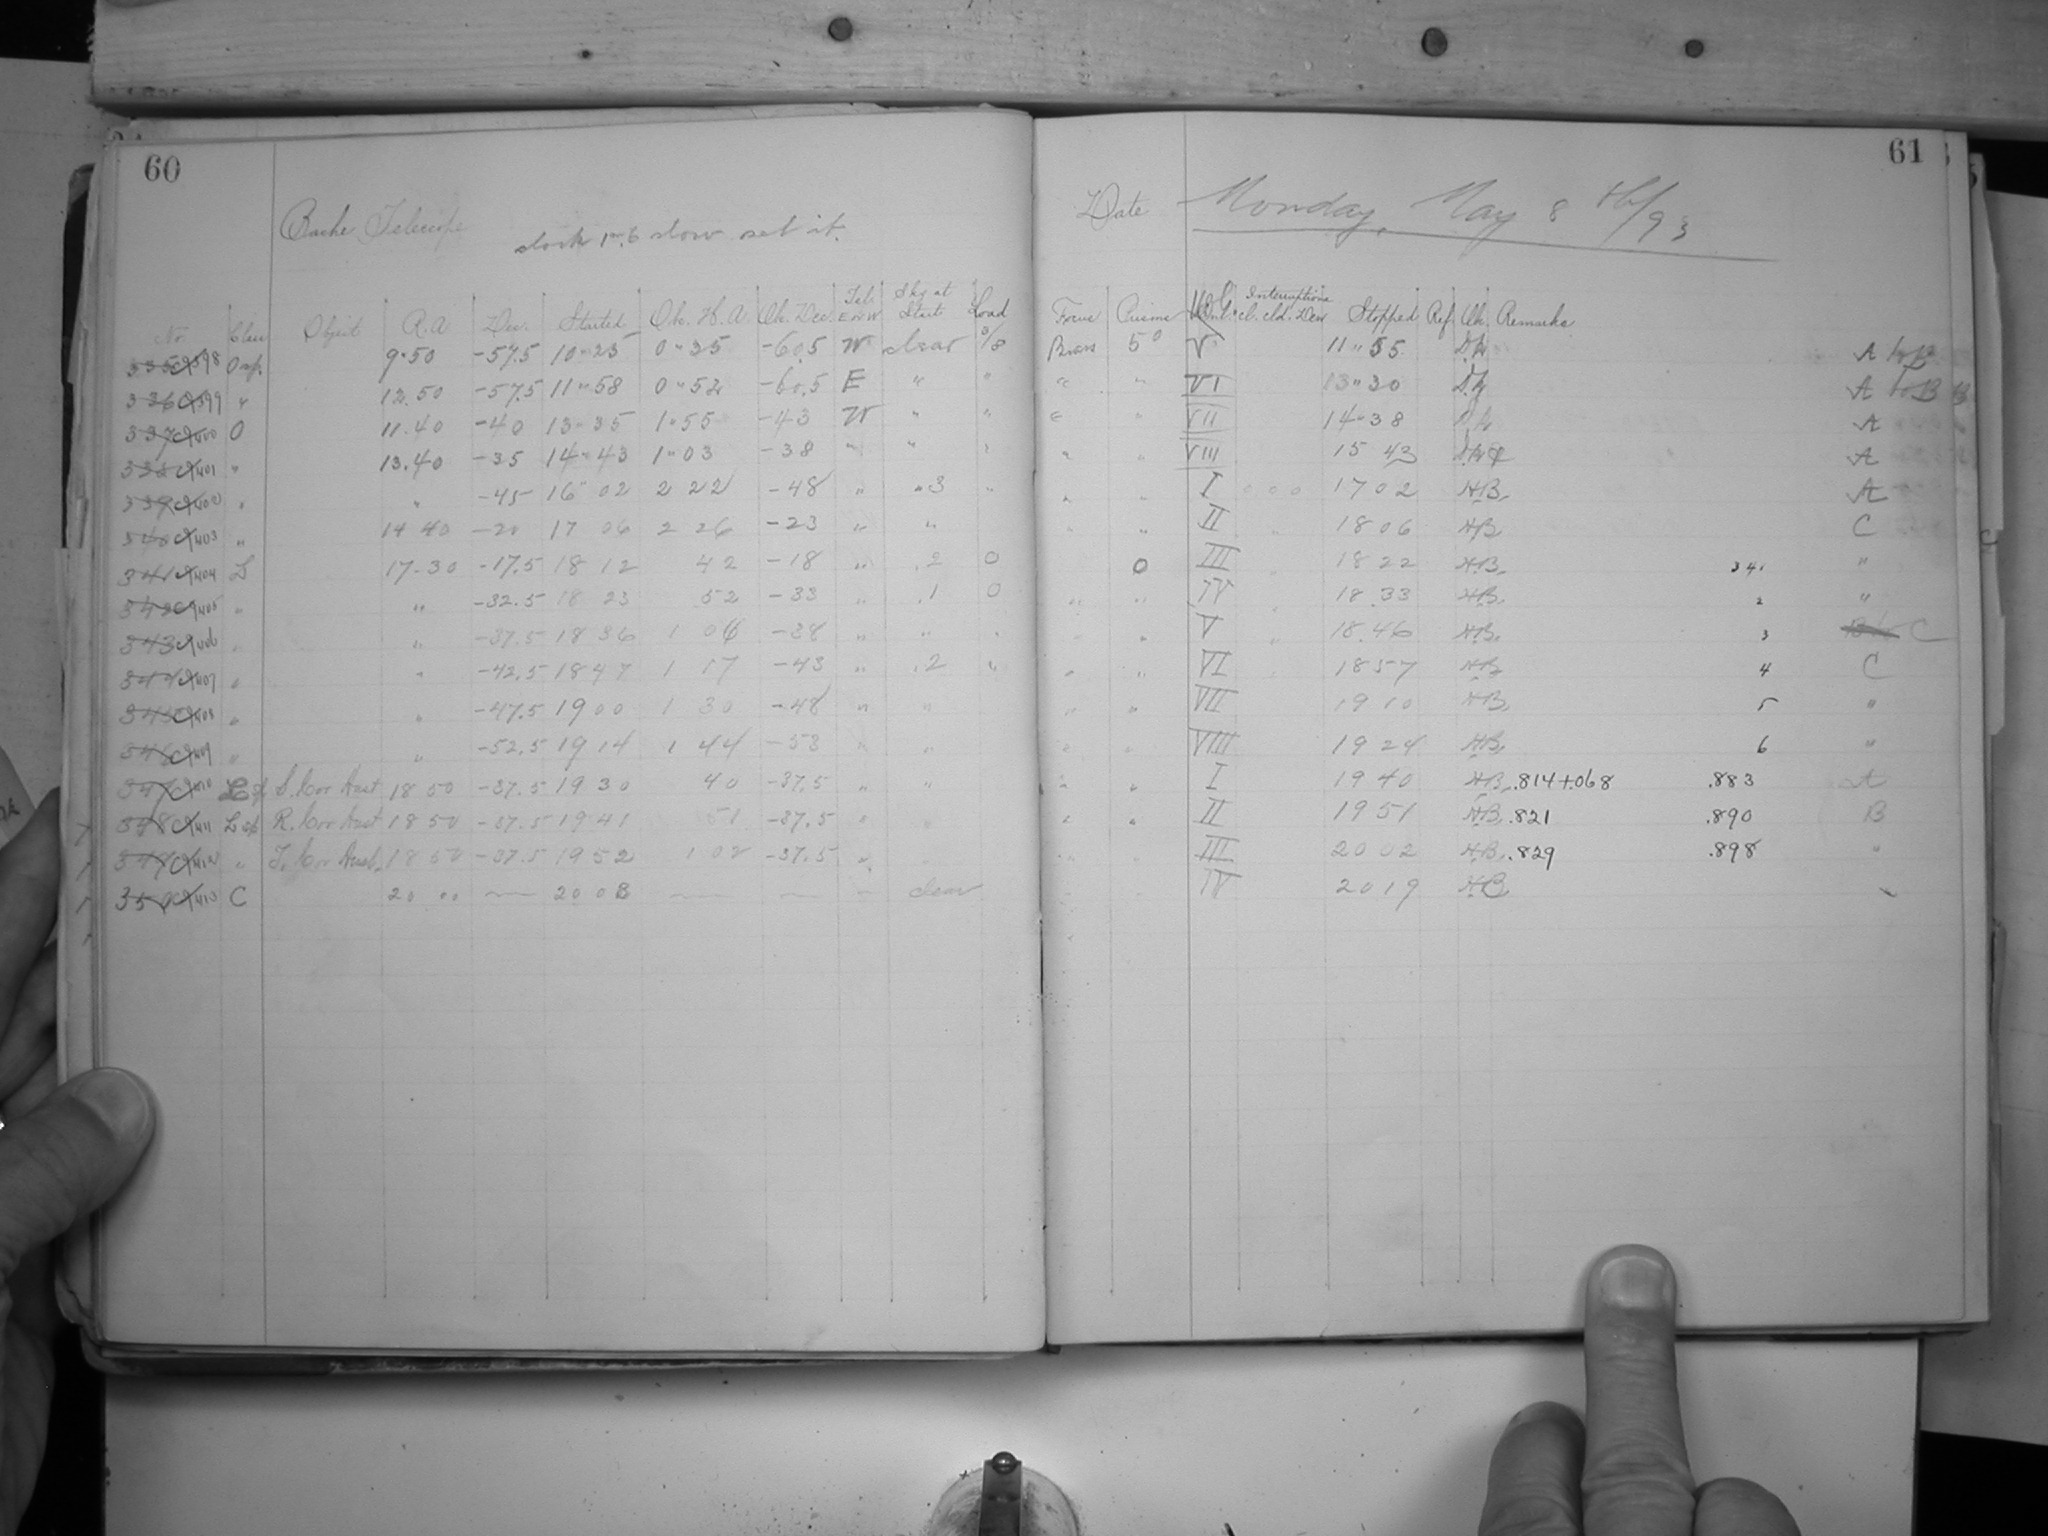 60
Bache Telescope
clock 1m.6 slow set it.
No. Class Object R.A. Dec. Started Ob. H.A. Ob. Dec. Tel. E or W Sky at Start Load
9 50 -57.5 10 25 0 35 -60.5 W clear 3/8
" 12.50 -57.5 11 58 0 52 -60.5 E " "
O 11.40 -40 13 35 1 55 -43 W " "
" 13.40 -35 14 43 1 03 -38 " "
" " -45 16 02 2 22 -48 " .3 "
" 14 40 -20 17 06 2 26 -23 " "
L 17.30 -17.5 18 12 42 -18 " .2 0
" " -32.5 18 23 52 -33 " .1 0
" " -37.5 18 36 1 06 -38 " "
" " -42.5 18 47 1 17 -43 " .2 "
" " -47.5 19 00 1 30 -48 " "
" " -52.5 19 14 1 44 -53 " "
S. Cor Aust 18 50 -37.5 19 30 40 -37.5 " "
R. Cor Aust 18 50 -37.5 19 41 51 -37.5 "
" T. Cor Aust. 18 50 -37.5 19 52 1 02 -37.5 "
C 20 00 — 20 08 — — - clear
61
Date Monday, May 8th/93
Focus Prisms Interruptions cl. cld. Dew Stopped Ref. Ob. Remarks
Brass 5° V 11 55 A to B
" " VI 13 30 A to B B
" VII 14 38 A
" " VIII 15 43 A
" " I 0 0 0 17 02 H.B. A
" " II 18 06 H.B. C
0 III 18 22 H.B. 341 "
" " IV 18.33 H.B. 2 "
" V 18.46 H.B. 3 C
" " VI 18 57 H.B. 4 C
" " VII 19 10 H.B. 5 "
" " VIII 19 24 H.B. 6 "
" " I 19 40 H.B. .814+.068 .883 A
" " II 19 51 H.B. .821 .890 B
" " III 20 02 H.B. .829 .898 "
IV 20 19 H.B.